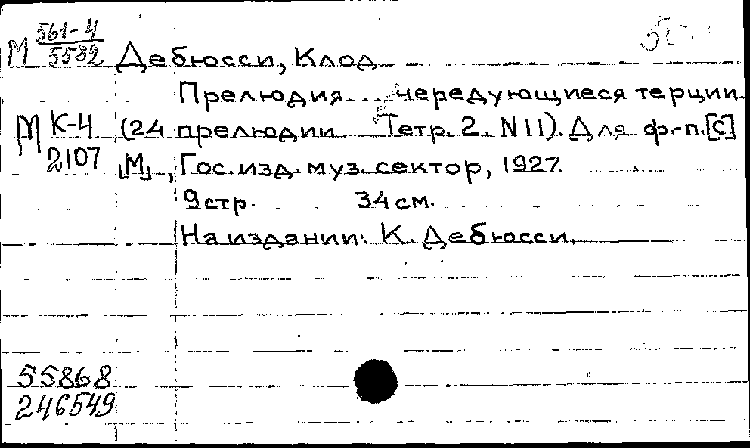 М 561-4/5582 Дебюсси, Клод
Прелюдия чередующиеся терции
М К-4 (24 прелюдии Тетр. 2. N 11). Для ф.-п. [С]
2107 [М], Гос. изд. муз. сектор, 1927.
9 стр. 34 см.
На издании: К. Дебюсси.
55868
246549